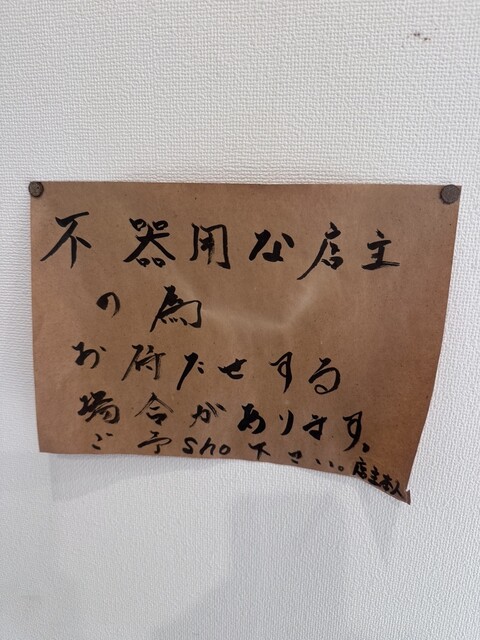 不器用な店主
の為
お待たせする
場合があります。
ご予sho下さい。店主本人